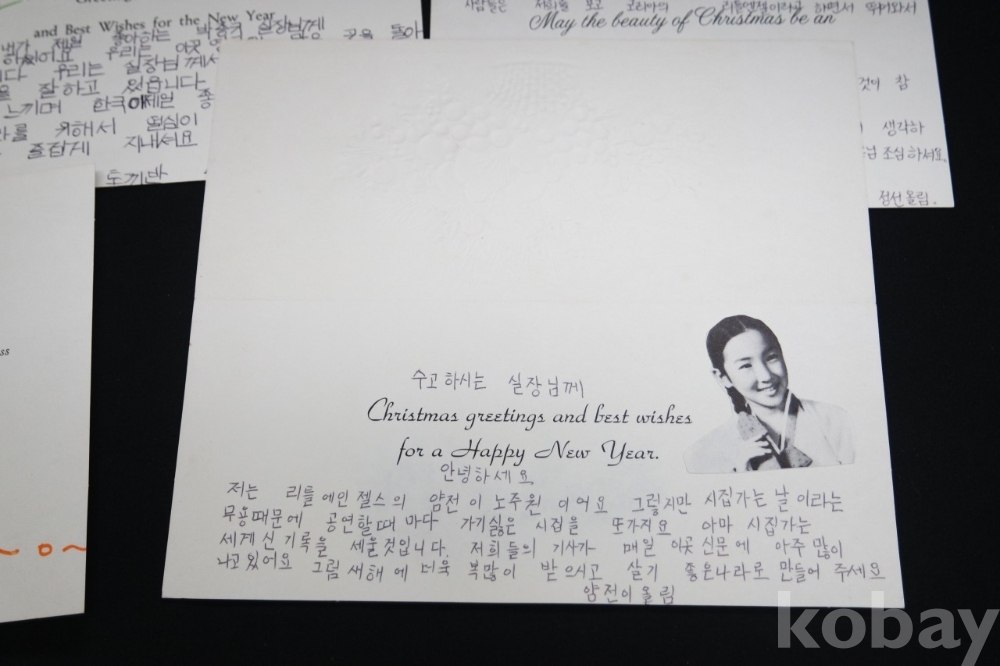 and Best Wishes for the New Year
우리는 실장님께서
잘하고 있읍니다
느끼며 한국에 제일
위해서 열심이
즐겁게 지내셔요
토끼반
May the beauty of Christmas be an
참
생각하
조심하셔요.
정선올림.
ss
수고하시는 실장님께
Christmas greetings and best wishes
for a Happy New Year.
안녕하세요
저는 리틀에인젤스의 얌전이 노주원 이어요 그렇지만 시집가는 날이라는
무용때문에 공연할때 마다 가기싫은 시집을 또가지요 아마 시집가는
세계신기록을 세울것입니다. 저희들의 기사가 매일 이곳 신문에 아주 많이
나고있어요 그럼 새해에 더욱 복많이 받으시고 살기 좋은나라로 만들어 주세요
얌전이올림
kobay